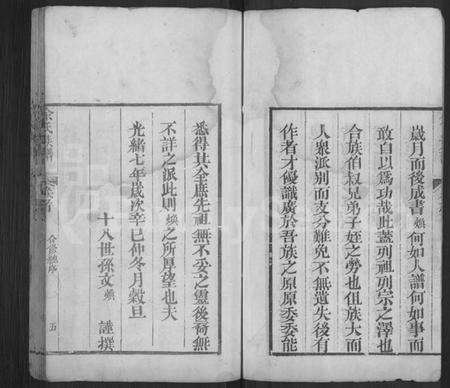 歲月而後成書煥何如人譜何如事而
敢自以爲功哉此蓋列祖列宗之澤也
合族伯叔兄弟子姪之勞也但族大而
人衆派別而支分難免不無遺失後有
作者才優識廣於吾族之原原委委能
悉得其全庶先祖無不妥之靈後裔無
不詳之派此則煥之所厚望也夫
光緒七年歲次辛巳仲冬月穀旦
十八世孫文煥謹撰
余氏族譜
五